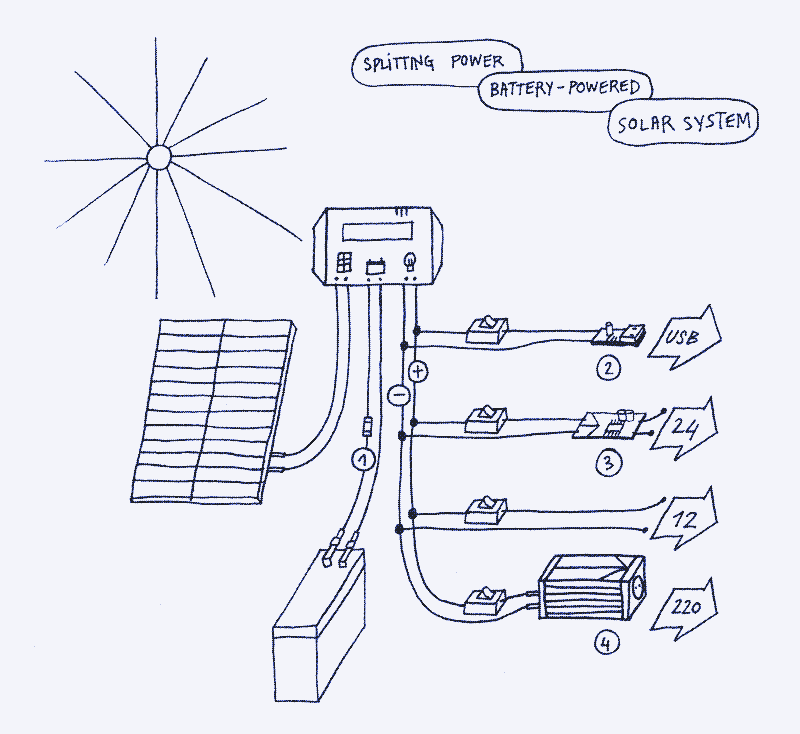 SPLITTING POWER
BATTERY-POWERED
SOLAR SYSTEM
USB
2
+
−
24
1
3
12
220
4